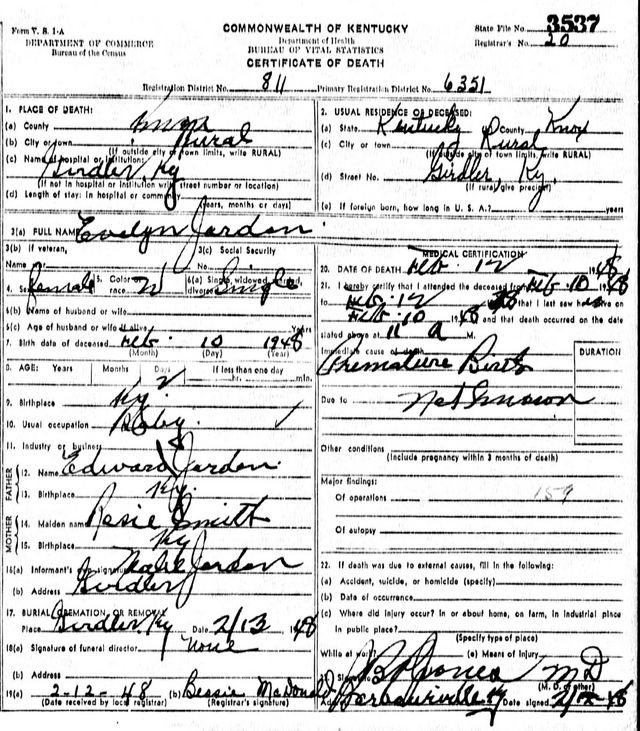 Form V. S. 1-A
DEPARTMENT OF COMMERCE
Bureau of the Census
COMMONWEALTH OF KENTUCKY
Department of Health
BUREAU OF VITAL STATISTICS
CERTIFICATE OF DEATH
State File No. 3537
Registrar's No. 20
Registration District No. 811 Primary Registration District No. 6351
1. PLACE OF DEATH:
(a) County Knox
(b) City or town Rural
(If outside city or town limits, write RURAL)
(c) Name of hospital or institution:
Girdler, Ky
(If not in hospital or institution write street number or location)
(d) Length of stay: in hospital or community
(years, months or days)
2. USUAL RESIDENCE OF DECEASED:
(a) State Kentucky (b) County Knox
(c) City or town Rural
(If outside city or town limits, write RURAL)
(d) Street No. Girdler, Ky.
(If rural give precinct)
(e) If foreign born, how long in U. S. A.? years
3(a) FULL NAME Evelyn Jordon
3(b) If veteran, 3(c) Social Security
Name or war No.
4. Sex female 5. Color or race W 6(a) Single, widowed, married, divorced Single
6(b) Name of husband or wife
6(c) Age of husband or wife if alive Years
7. Birth date of deceased Feb. 10 1948
(Month) (Day) (Year)
8. AGE: Years Months Days If less than one day
2 hr. min.
9. Birthplace Ky.
10. Usual occupation Baby
11. Industry or business
FATHER
12. Name Edward Jordon
13. Birthplace Ky.
MOTHER
14. Maiden name Rosie Smith
15. Birthplace Ky
16(a) Informant's own signature Jordon
(b) Address Girdler
17. BURIAL, CREMATION, OR REMOVAL
Place Girdler, Ky Date 2/13 1948
18(a) Signature of funeral director none
(b) Address
19(a) 2-12-48 (b) Bessie McDonald
(Date received by local registrar) (Registrar's signature)
MEDICAL CERTIFICATION
20. DATE OF DEATH Feb. 12 1948
21. I hereby certify that I attended the deceased from Feb. 10 1948
to Feb. 12 48 that I last saw h alive on
Feb. 10 1948 and that death occurred on the date
stated above at 11 A M.
Immediate cause of death DURATION
Premature Birth
Due to Not Known
Other conditions
(Include pregnancy within 3 months of death)
Major findings:
Of operations 159
Of autopsy
22. If death was due to external causes, fill in the following:
(a) Accident, suicide, or homicide (specify)
(b) Date of occurrence
(c) Where did injury occur? In or about home, on farm, in industrial place
in public place?
(Specify type of place)
While at work? (e) Means of Injury
Jones MD
(M. D. or other)
Address Barbourville, Ky Date signed